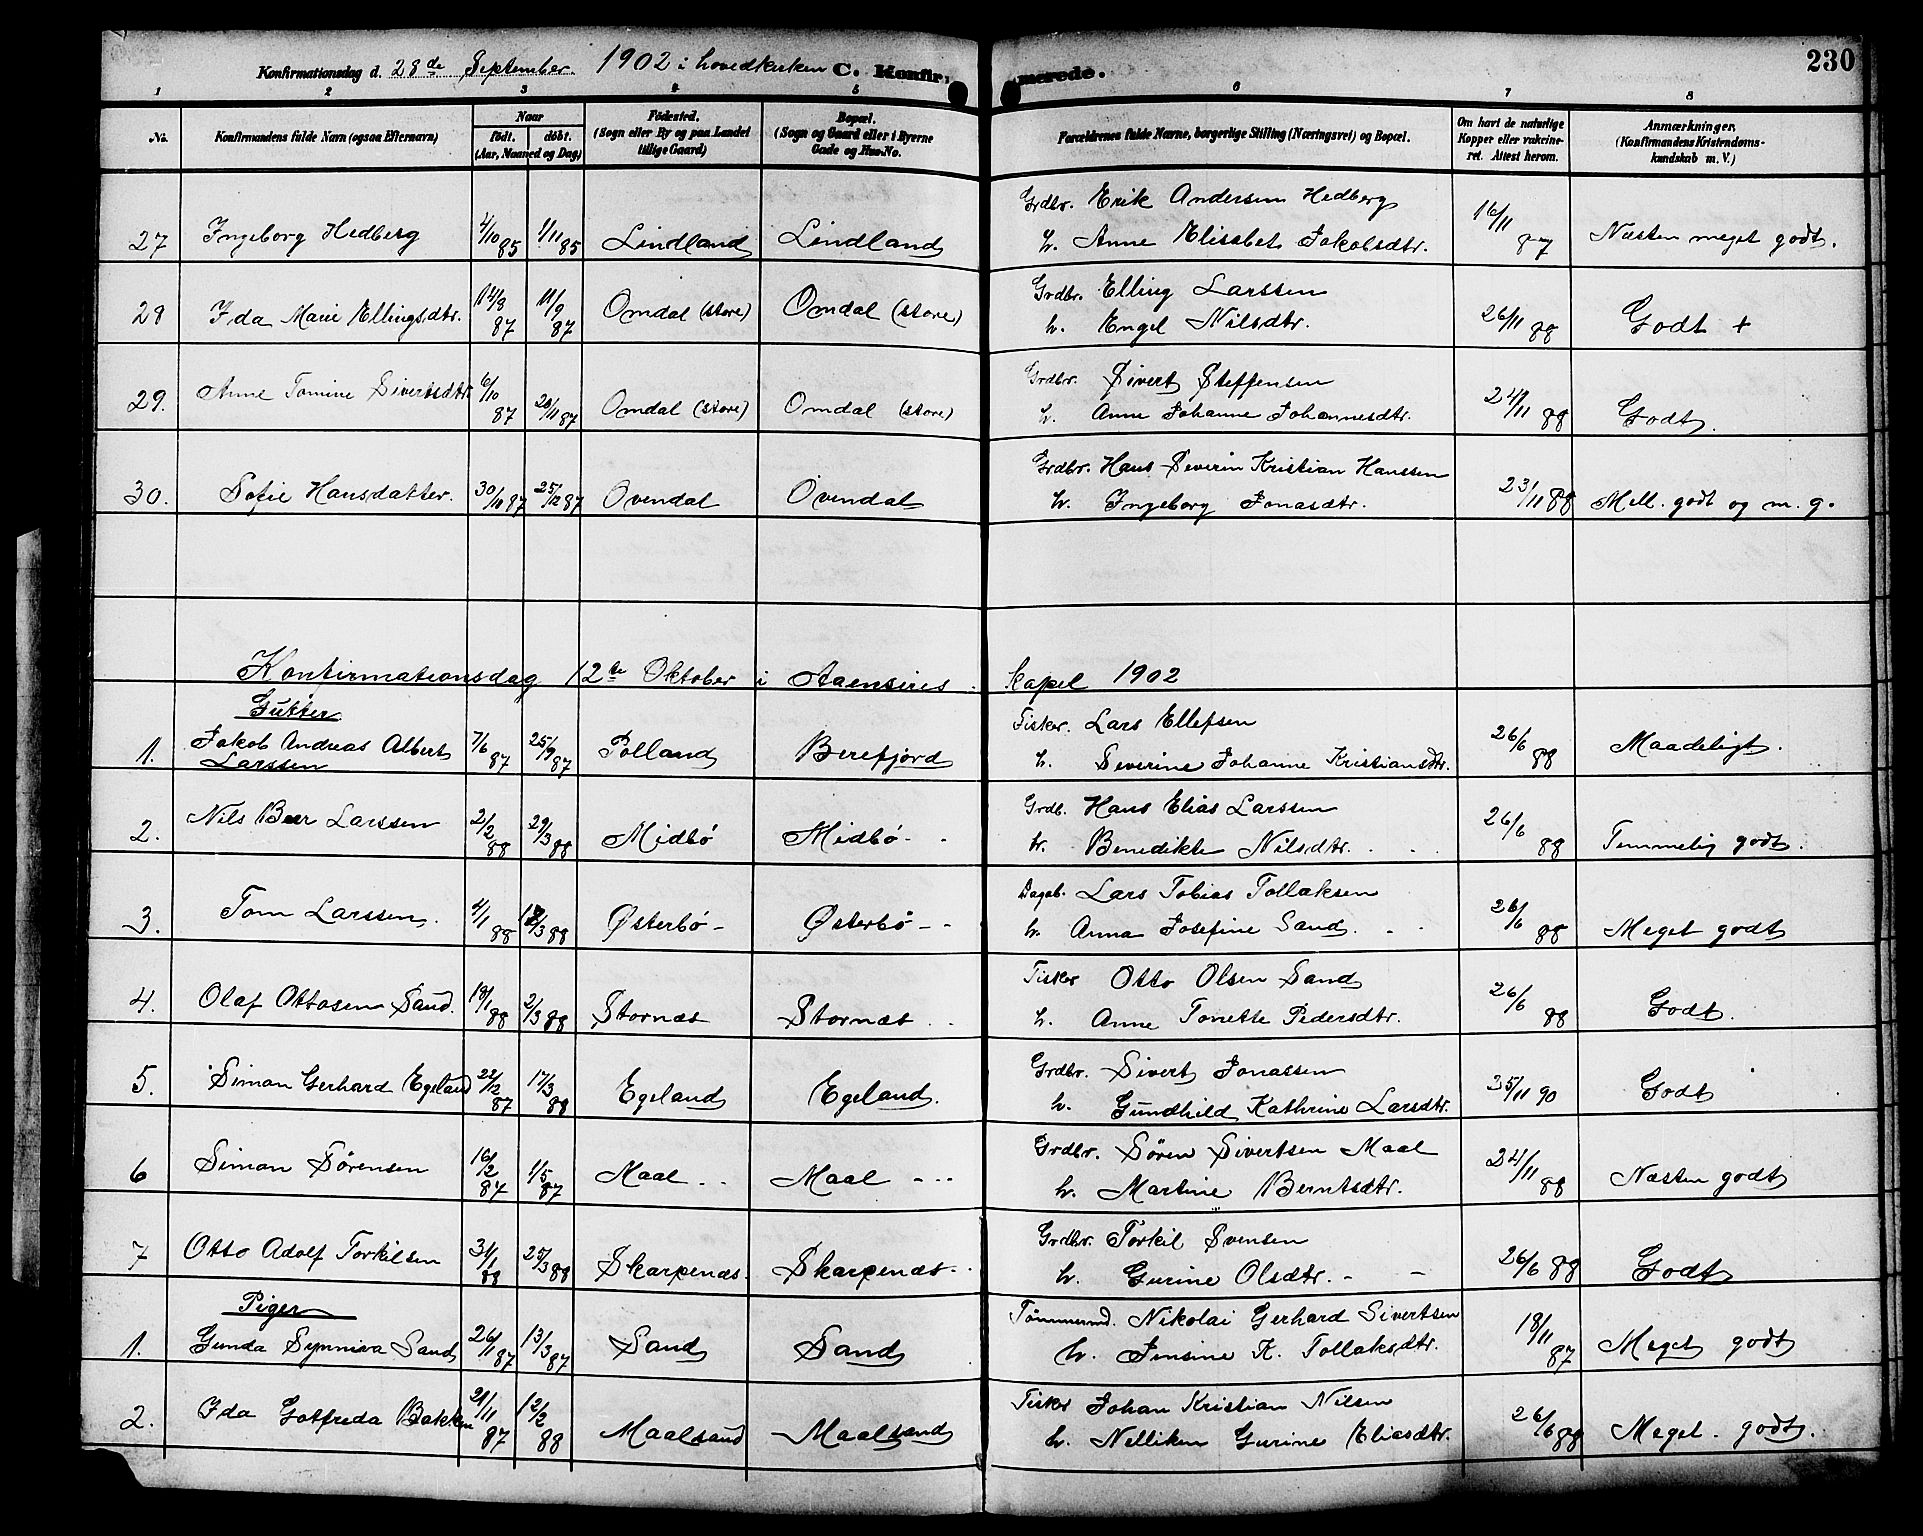 Konfirmationsdag d. 28de September 1902 i hovedkirken C. Konfirmerede. 230
1 2 3 4 5 6 7 8
No. Konfirmandens fulde Navn (ogsaa Efternavn) Naar födt. döbt. (Aar, Maaned og Dag) Födested. (Sogn eller By og paa Landet tillige Gaard) Bopæl. (Sogn og Gaard eller i Byerne Gade og Hus-No. Forældrenes fulde Navne, borgerlige Stilling (Næringsvei) og Bopæl. Om havt de naturlige Kopper eller vakcineret. Attest herom. Anmærkninger. (Konfirmandens Kristendomskundskab m. V.)
27 Ingeborg Hedberg 4/10 85 1/11 85 Lindland Lindland Grdbr. Erik Andersen Hedberg 16/11 87 Næsten meget godt.
h. Anne Elisabet Jakobsdtr.
28 Ida Marie Ellingsdtr. 14/8 87 11/9 87 Omdal (store) Omdal (store) Grdbr. Elling Larssen 26/11 88 Godt +
h. Engel Nilsdtr.
29. Anne Tomine Sivertsdtr. 6/10 87 20/11 87 Omdal (store) Omdal (store) Grdbr. Sivert Steffensen 24/11 88 Godt.
h. Anne Johanne Johannesdtr.
30. Sofie Hansdatter. 30/10 87 25/12 87 Ovendal Ovendal Grdbr. Hans Severin Kristian Hanssen 23/11 88 Mell. godt og m. g.
h. Ingeborg Jonasdtr.
Konfirmationsdag 12te Oktober i Aaensires kapel 1902
Gutter
1. Jakob Andreas Albert Larssen 7/6 87 25/9 87 Polland Berefjord Fisker. Lars Ellefsen 26/6 88 Maadeligt.
h. Severine Johanne Kristiansdtr.
2. Nils Beer Larssen 2/2 88 29/3 88 Midbö Midbö - - Grdb. Hans Elias Larssen 26/6 88 Temmelig godt.
h. Benedikte Nilsdtr. . .
3. Tom Larssen. 4/1 88 /3 88 Østerbö - Østerbö - - Dageb. Lars Tobias Tollaksen 26/6 88 Meget godt
h. Anna Josefine Sand. - -
4. Olaf Ottosen Sand. 19/1 88 2/3 88 Stornæs Stornæs . . Fisker Otto Olsen Sand 26/6 88 Godt.
h. Anne Tonette Pedersdtr.
5. Simon Gerhard Egeland 22/12 87 17/3 88 Egeland Egeland. Grdbr. Sivert Jonassen 25/11 90 Godt
h. Gundhild Kathrine Larsdtr.
6 Simon Sörensen 16/2 87 1/5 87 Maal . . Maal - - - Grdbr. Sören Sivertsen Maal 24/11 88 Næsten godt
h. Martine Berntsdtr.
7 Otto Adolf Torkilsen 31/1 88 25/3 88 Skarpenæs. Skarpenæs . . Grdbr. Torkil Svensen 26/6 88 Godt
h. Gurine Olsdtr. - -
Piger
1. Gunda Synniva Sand 26/1 87 13/3 87 Sand Sand Tömmermd. Nikolai Gerhard Sivertsen 18/11 87 Meget godt
h. Jensine K. Tollaksdtr.
2. Ida Gotfreda Bakken 21/11 87 12/2 88 Maalsand Maalsand Fisker Johan Kristian Nilsen 26/6 88 Meget. godt.
h. Nelliken Gurine Eliasdtr.